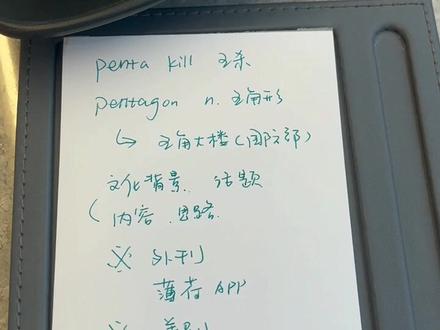 penta kill 五杀
pentagon n. 五角形
↳ 五角大楼(国防部)
文化背景. 话题
( 内容. 思路.
※ 外刊
薄荷 APP